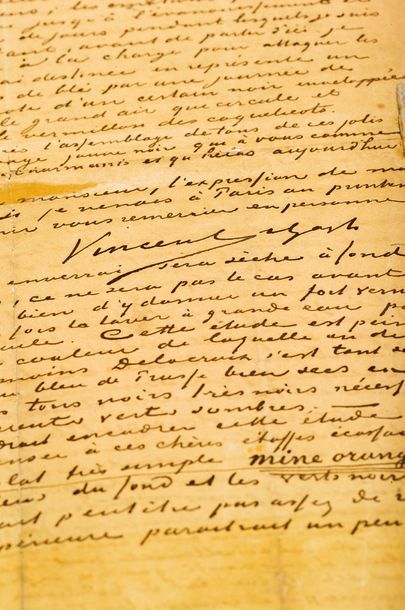 jusqu'à l'
de jours pendant lesquels je suis
avant de partir d'ici je
à la charge pour attaquer les
ai destinée en représente un
de blé par une journée de
d'un certain noir enveloppée
le grand air que circule et
le vermillon des coquelicots.
l'assemblage de tons de ces jolis
jaune noir qui à vous comme
charmants et qu'hélas aujourd'hui
monsieur, l'expression de ma
je venais à Paris au printem
vous remercier en personne
Vincent
enverrai sera sèche à fond
, ce ne sera pas le cas avant
bien d'y donner un fort vern
fois la laver à grande eau po
Cette étude est pein
couleur de laquelle on di
moins Delacroix s'est tant se
bleu de Prusse bien sec en
tons noirs très noirs nécess
verts sombres. —
encadrer cette étude
à ces chères étoffes écossai
très simple mine orang
du fond et les verts noir
peut être pas assez de r
paraitrait un peu